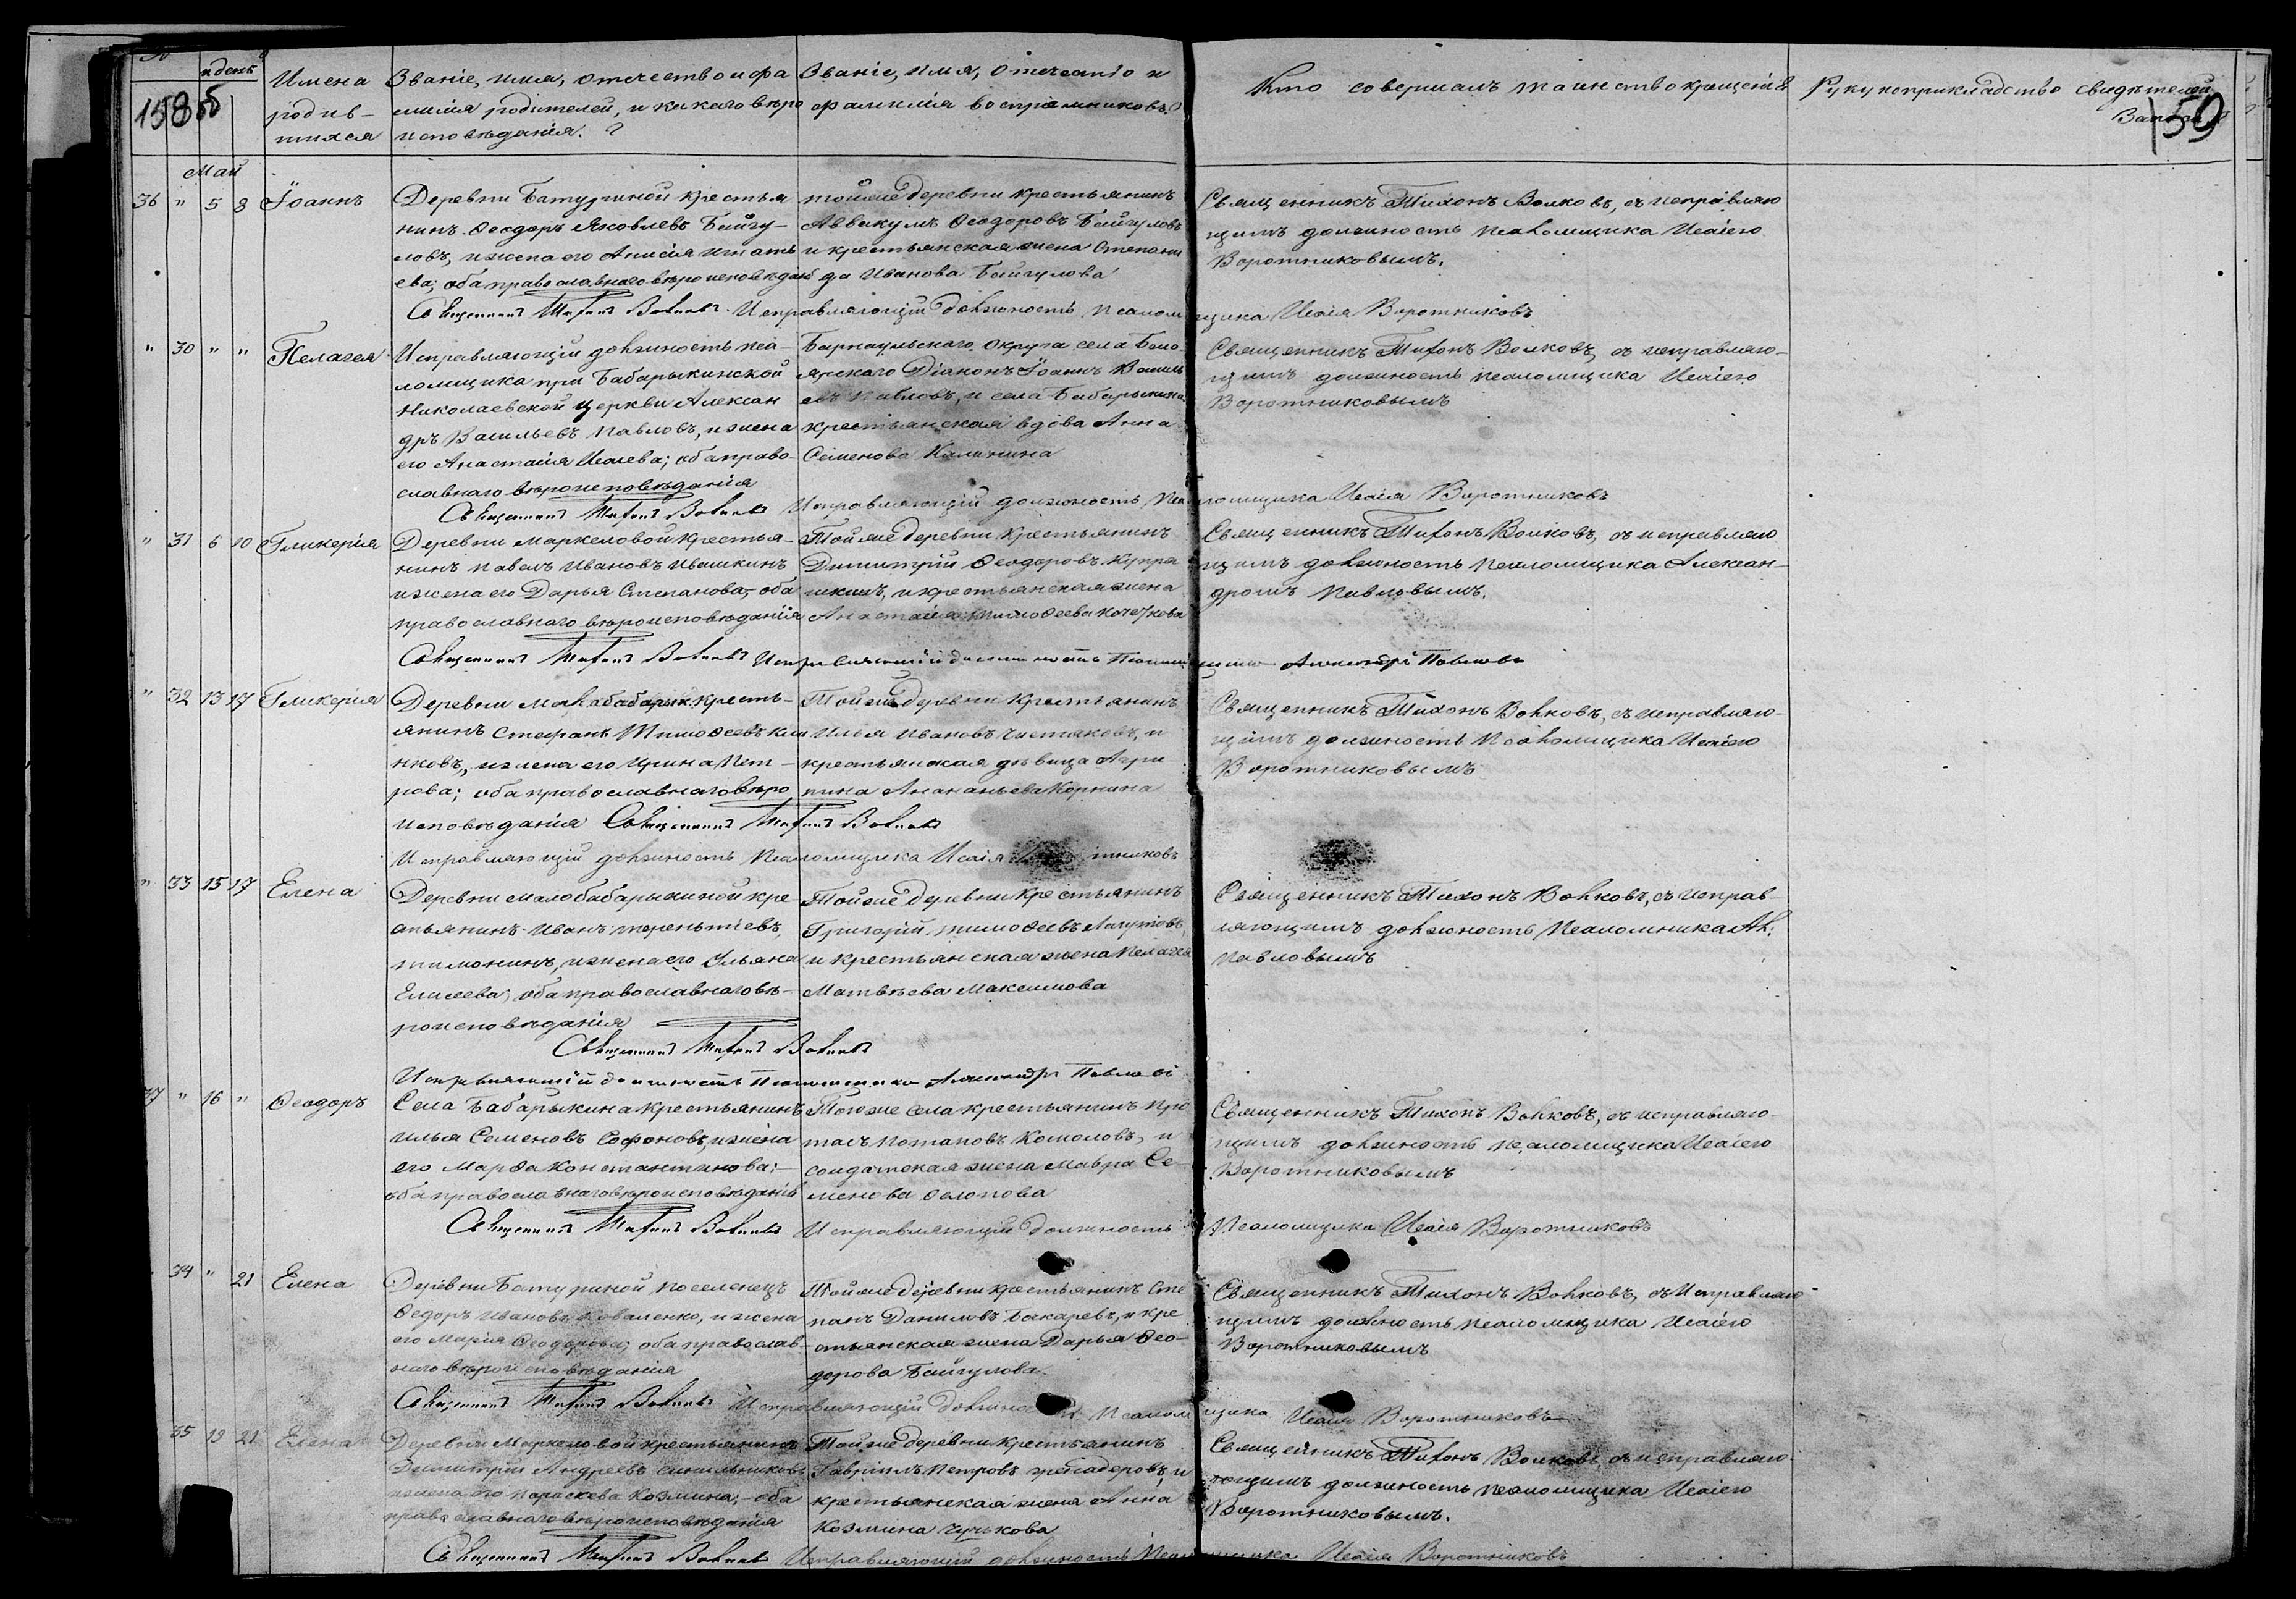 и день
158об
Имена родив- шихся
Званіе, имя, отчество и фа милія родителей, и какого вѣро исповѣданія.
Званіе, имя, отчество и фамилія воспріемниковъ.
Кто совершалъ таинство крещенія
Рукуприкладство свидѣтелей
159
Май
36 " 5 8 Іоаннъ
Деревни Батуриной крестья
нинъ Ѳеодоръ Яковлевъ Байгу-
ловъ, и жена его Анисія Игнать
ева; оба православнаго вѣроисповѣданія
тойже деревни крестьянинъ
Аввакумъ Ѳеодоровъ Байгуловъ
и крестьянская жена Степани
да Иванова Байгулова
Священникъ Тихонъ Волковъ, съ исправляю
щимъ должность псаломщика Исаіею
Воротниковымъ.
Священникъ Тихонъ Волковъ. Исправляющій должность псаломщика Исаія Воротниковъ
" 30 " " Пелагея
Исправляющій должность пса-
ломщика при Бабарыкинской
Николаевской церкви Алексан
дръ Васильевъ Павловъ, и жена
его Анастасія Исаева; оба право-
славнаго вѣроисповѣданія
Барнаульскаго округа села Бело-
ярскаго Діаконъ Іоаннъ Василь
евъ Павловъ, и села Бабарыкина
крестьянская вдова Анна
Семенова Калинина
Священникъ Тихонъ Волковъ, съ исправляю-
щимъ должность псаломщика Исаіею
Воротниковымъ
Священникъ Тихонъ Волковъ Исправляющій должность псаломщика Исаія Воротниковъ
" 31 6 10 Гликерія
Деревни Маркеловой крестья-
нинъ Павелъ Ивановъ Ивашкинъ
и жена его Дарья Степанова; оба
православнаго вѣроисповѣданія
Той же деревни крестьянинъ
Димитрій Ѳеодоровъ Купря
шкинъ, и крестьянская жена
Анастасія Тимоѳеева Кочеткова
Священникъ Тихонъ Волковъ, съ исправляю
щимъ должность псаломщика Алексан-
дромъ Павловымъ.
Священникъ Тихонъ Волковъ Исправляющій должность Псаломщика Александръ Павловъ
" 32 13 17 Гликерія
Деревни Малабабарык. кресть-
янинъ Стефанъ Тимоѳеевъ Кли
нковъ, и жена его Ирина Пет-
рова; оба православнаго вѣро
исповѣданія
Той же деревни крестьянинъ
Илья Ивановъ Чистяковъ, и
крестьянская дѣвица Агри
пина Ананьева Корнина
Священникъ Тихонъ Волковъ, съ исправляю-
щимъ должность псаломщика Исаіею
Воротниковымъ
Священникъ Тихонъ Волковъ
Исправляющій должность псаломщика Исаія
" 33 15 17 Елена
Деревни Малобабарыкиной кре-
стьянинъ Иванъ Терентіевъ
Тимонинъ, и жена его Ульяна
Елисеева; оба православнаго вѣ-
роисповѣданія
Той же деревни крестьянинъ
Григорій Тимоѳеевъ Лагутовъ,
и крестьянская жена Пелагея
Матвѣева Максимова
Священникъ Тихонъ Волковъ, съ исправ-
ляющимъ должность псаломщика Ал.
Павловымъ
Священникъ Тихонъ Волковъ
Исправляющій должность Псаломщика Александръ Павловъ
37 " 16 " Ѳеодоръ
Села Бабарыкина крестьянинъ
Илья Семеновъ Софоновъ, и жена
его Марѳа Константинова;-
оба православнаго вѣроисповѣданія
Тогоже села крестьянинъ Про
тасъ Потаповъ Комоловъ, и
солдатская жена Мавра Се-
менова
Священникъ Тихонъ Волковъ, съ исправляю-
щимъ должность псаломщика Исаіею
Воротниковымъ
Священникъ Тихонъ Волковъ Исправляющій должность Псаломщика Исаія Воротниковъ
34 " 21 Елена
Деревни Батуриной поселенецъ
Ѳедоръ Ивановъ Коваленко, и жена
его Марія Ѳеодорова; оба православ-
наго вѣроисповѣданія
Той же деревни крестьянинъ Сте
панъ Даниловъ Бакаревъ, и кре
стьянская жена Дарья Ѳео-
дорова Байгулова
Священникъ Тихонъ Волковъ, съ исправляю-
щимъ должность псаломщика Исаіею
Воротниковымъ
Священникъ Тихонъ Волковъ Исправляющій должность псаломщика Исаія Воротниковъ
35 19 21 Елена
Деревни Маркеловой крестьянинъ
Димитрій Андреевъ Синильниковъ
и жена его Параскева Козмина; оба
православнаго вѣроисповѣданія
Той же деревни крестьянинъ
Гавріилъ Петровъ и
крестьянская жена Анна
Козмина Чучкова
Священникъ Тихонъ Волковъ, съ исправляю-
щимъ должность псаломщика Исаіею
Воротниковымъ.
Священникъ Тихонъ Волковъ Исправляющій должность псаломщика Исаія Воротниковъ